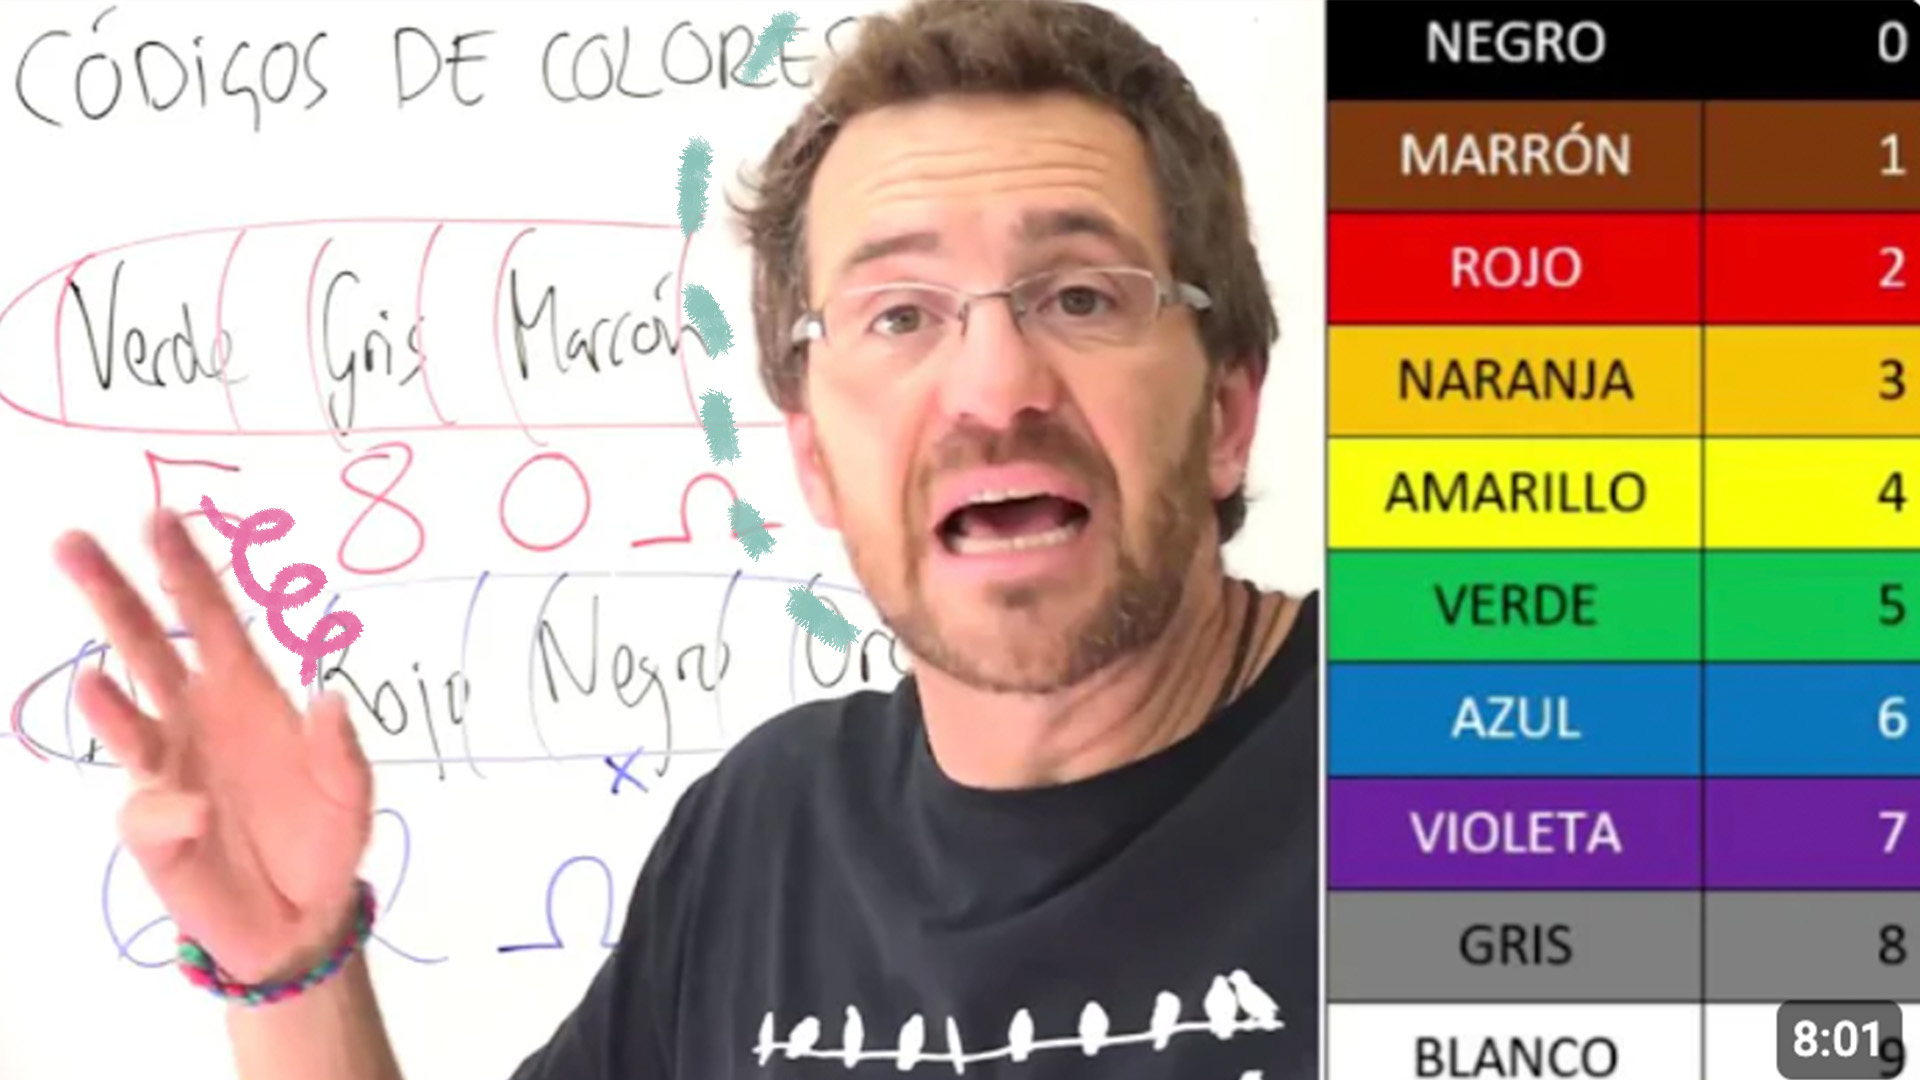 CÓDIGOS DE COLORES
Verde Gris Marrón
5 8 0 Ω
Rojo Negro Oro
x
6 2 Ω
NEGRO 0
MARRÓN 1
ROJO 2
NARANJA 3
AMARILLO 4
VERDE 5
AZUL 6
VIOLETA 7
GRIS 8
BLANCO 9
8:01